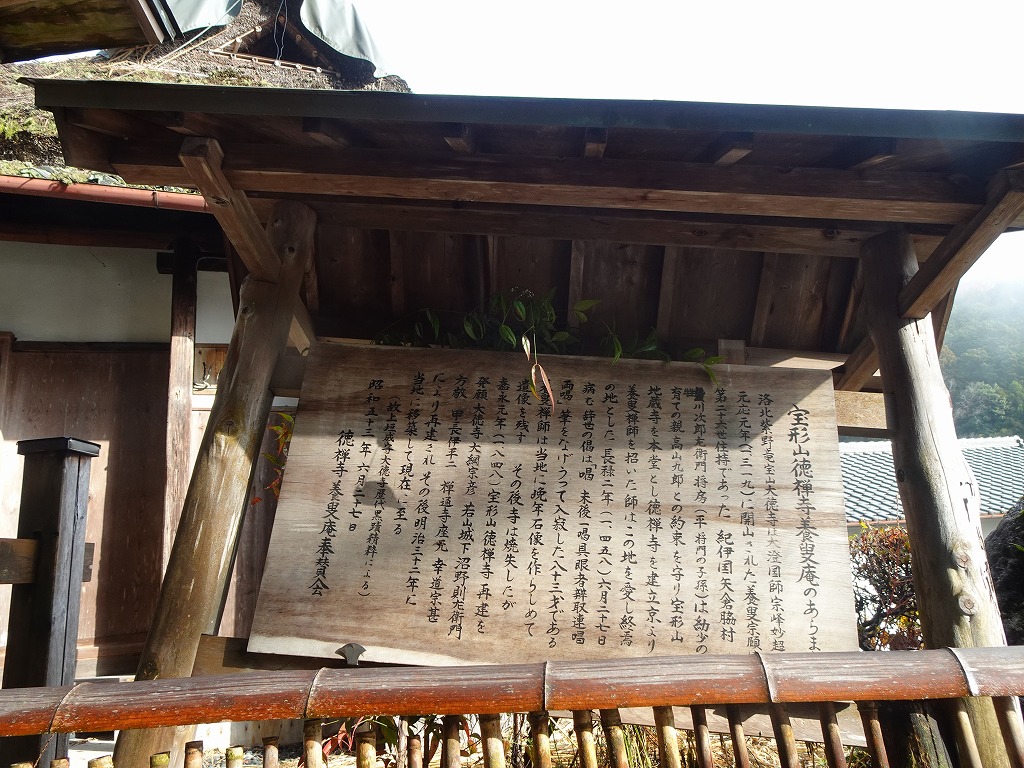 宝形山徳禅寺養叟庵のあらま
洛北紫野竜宝山大徳寺は大澄国師宗峰妙超
元応元年(一三一九)に開山された養叟宗願は
第二十六世住持であった 紀伊国矢倉脇村
川次郎左衛門将房(平将門の子孫)は幼少の
育ての親高山九郎との約束を守り宝形山
地蔵寺を本堂とし徳禅寺を建立京より
養叟禅師を招いた師はこの地を愛し終焉
の地とした 長禄二年(一四五八)六月二十七日
病む 辞世の偈「唱 末後一喝具眼者辨取連唱
両喝 筆をなげうって入寂した八十三才である
養叟禅師は当地に晩年石像を作らしめて
遺像を残す その後寺は焼失したが
嘉永元年(一八四八)宝形山徳禅寺再建を
発願 大徳寺大綱宗彦 若山城下沼野則左衛門
方教 甲長伊平二 禅道寺座元幸道宗甚
により再建され その後明治三十二年に
当地に移築して現在に至る
(数土堀蔵尊大徳寺歴代史蹟精粋による)
昭和五十三年六月二十七日
徳禅寺養叟庵奉賛会